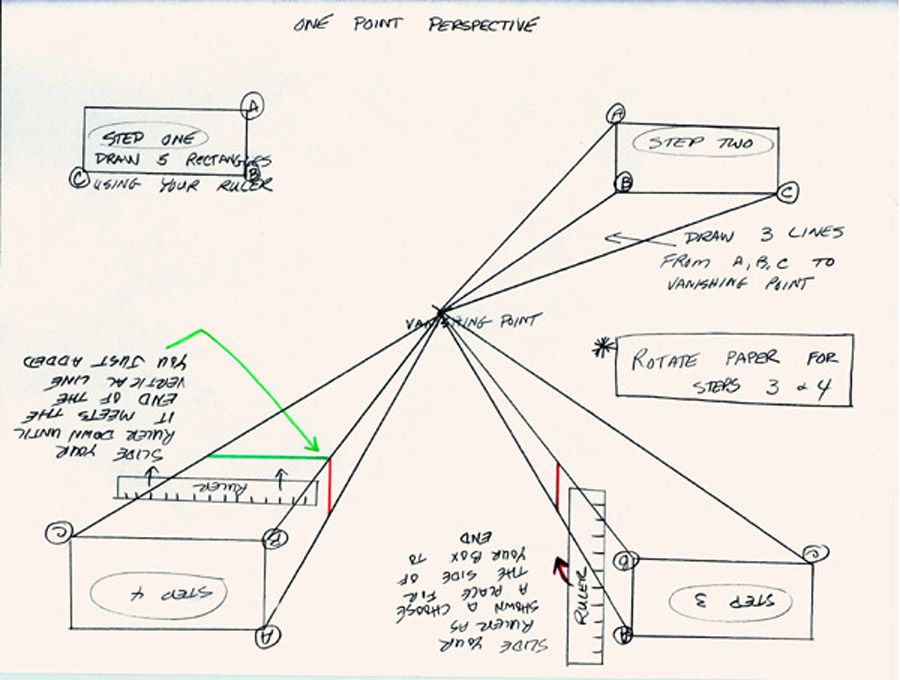 ONE POINT PERSPECTIVE
A
STEP ONE
DRAW 5 RECTANGLES
B
C
USING YOUR RULER
A
STEP TWO
B
C
DRAW 3 LINES
FROM A, B, C TO
VANISHING POINT
VANISHING POINT
* ROTATE PAPER FOR
STEPS 3 & 4
SLIDE YOUR
RULER DOWN UNTIL
IT MEETS THE
END OF THE
VERTICAL LINE
YOU JUST ADDED
RULER
C
B
STEP 4
A
SLIDE YOUR
RULER AS
SHOWN & CHOOSE
A PLACE FOR
THE SIDE OF
YOUR BOX TO
END
RULER
B
C
STEP 3